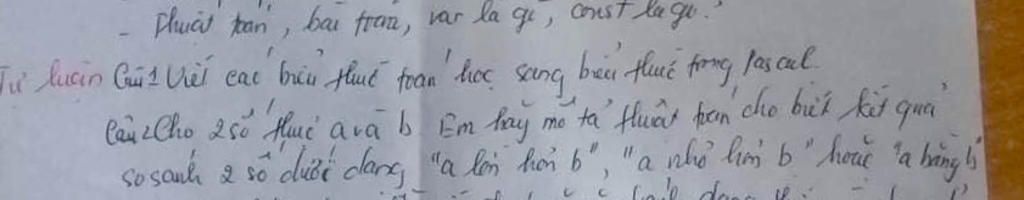 - Thuật toán, bài toán, var là gì, const là gì.
Tự luận Câu 1 Viết các biểu thức toán học sang biểu thức trong Pascal.
Câu 2 Cho 2 số thực a và b Em hãy mô tả thuật toán cho biết kết quả
so sánh 2 số dưới dạng "a lớn hơn b", "a nhỏ hơn b" hoặc "a bằng b"